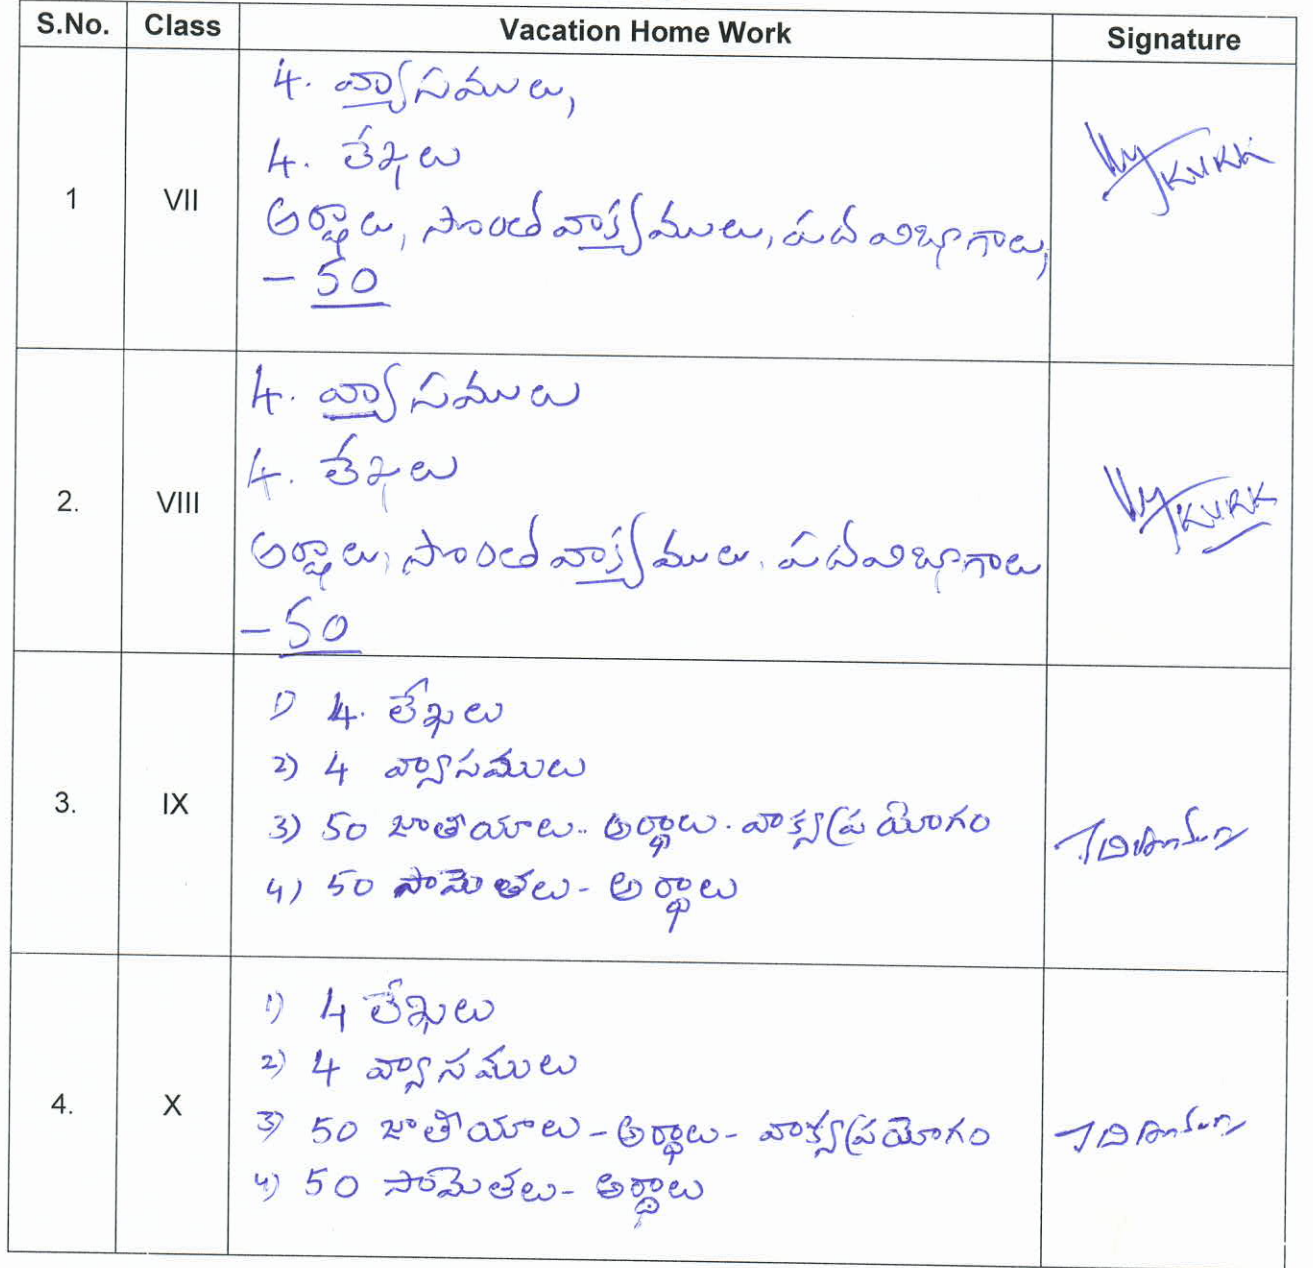 S.No. Class Vacation Home Work Signature
1 VII
4. వ్యాసములు,
4. లేఖలు
అర్థాలు, సొంత వాక్యములు, పద విభాగాలు,
- 50
KVRK
2. VIII
4. వ్యాసములు
4. లేఖలు
అర్థాలు, సొంత వాక్యములు. పదవిభాగాలు
- 50
K.V.RK
3. IX
1) 4. లేఖలు
2) 4 వ్యాసములు
3) 50 జాతీయాలు- అర్థాలు. వాక్యప్రయోగం
4) 50 సామెతలు- అర్థాలు
4. X
1) 4 లేఖలు
2) 4 వ్యాసములు
3) 50 జాతీయాలు - అర్థాలు - వాక్యప్రయోగం
4) 50 సామెతలు- అర్థాలు